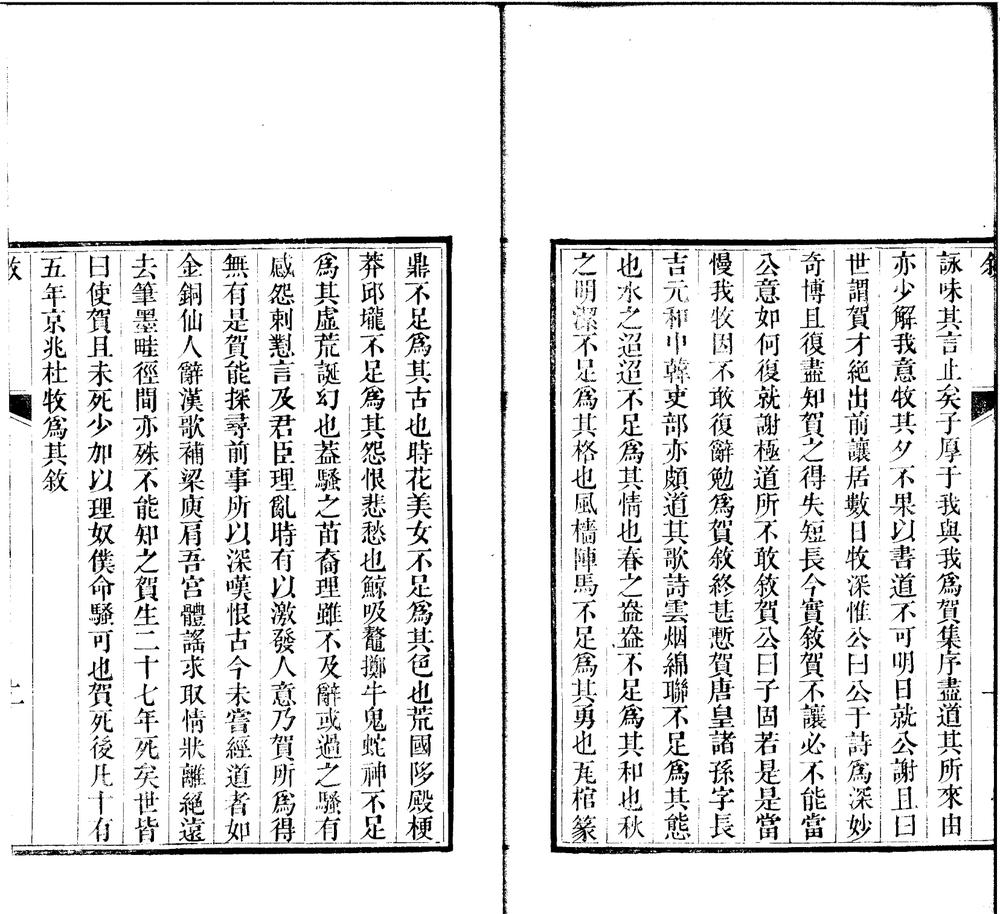 詠味其言止矣子厚于我與我爲賀集序盡道其所來由
亦少解我意牧其夕不果以書道不可明日就公謝且曰
世謂賀才絶出前讓居數日牧深惟公曰公于詩爲深妙
奇博且復盡知賀之得失短長今實敘賀不讓必不能當
公意如何復就謝極道所不敢敘賀公曰子固若是是當
慢我牧因不敢復辭勉爲賀敘終甚慙賀唐皇諸孫字長
吉元和中韓吏部亦頗道其歌詩雲烟綿聯不足爲其態
也水之迢迢不足爲其情也春之盎盎不足爲其和也秋
之明潔不足爲其格也風檣陣馬不足爲其勇也瓦棺篆
鼎不足爲其古也時花美女不足爲其色也荒國陊殿梗
莽邱壠不足爲其怨恨悲愁也鯨吸鼇擲牛鬼蛇神不足
爲其虛荒誕幻也蓋騷之苗裔理雖不及辭或過之騷有
感怨刺懟言及君臣理亂時有以激發人意乃賀所爲得
無有是賀能探尋前事所以深嘆恨古今未嘗經道者如
金銅仙人辭漢歌補梁庾肩吾宮體謠求取情狀離絕遠
去筆墨畦徑間亦殊不能知之賀生二十七年死矣世皆
曰使賀且未死少加以理奴僕命騷可也賀死後凡十有
五年京兆杜牧爲其敘